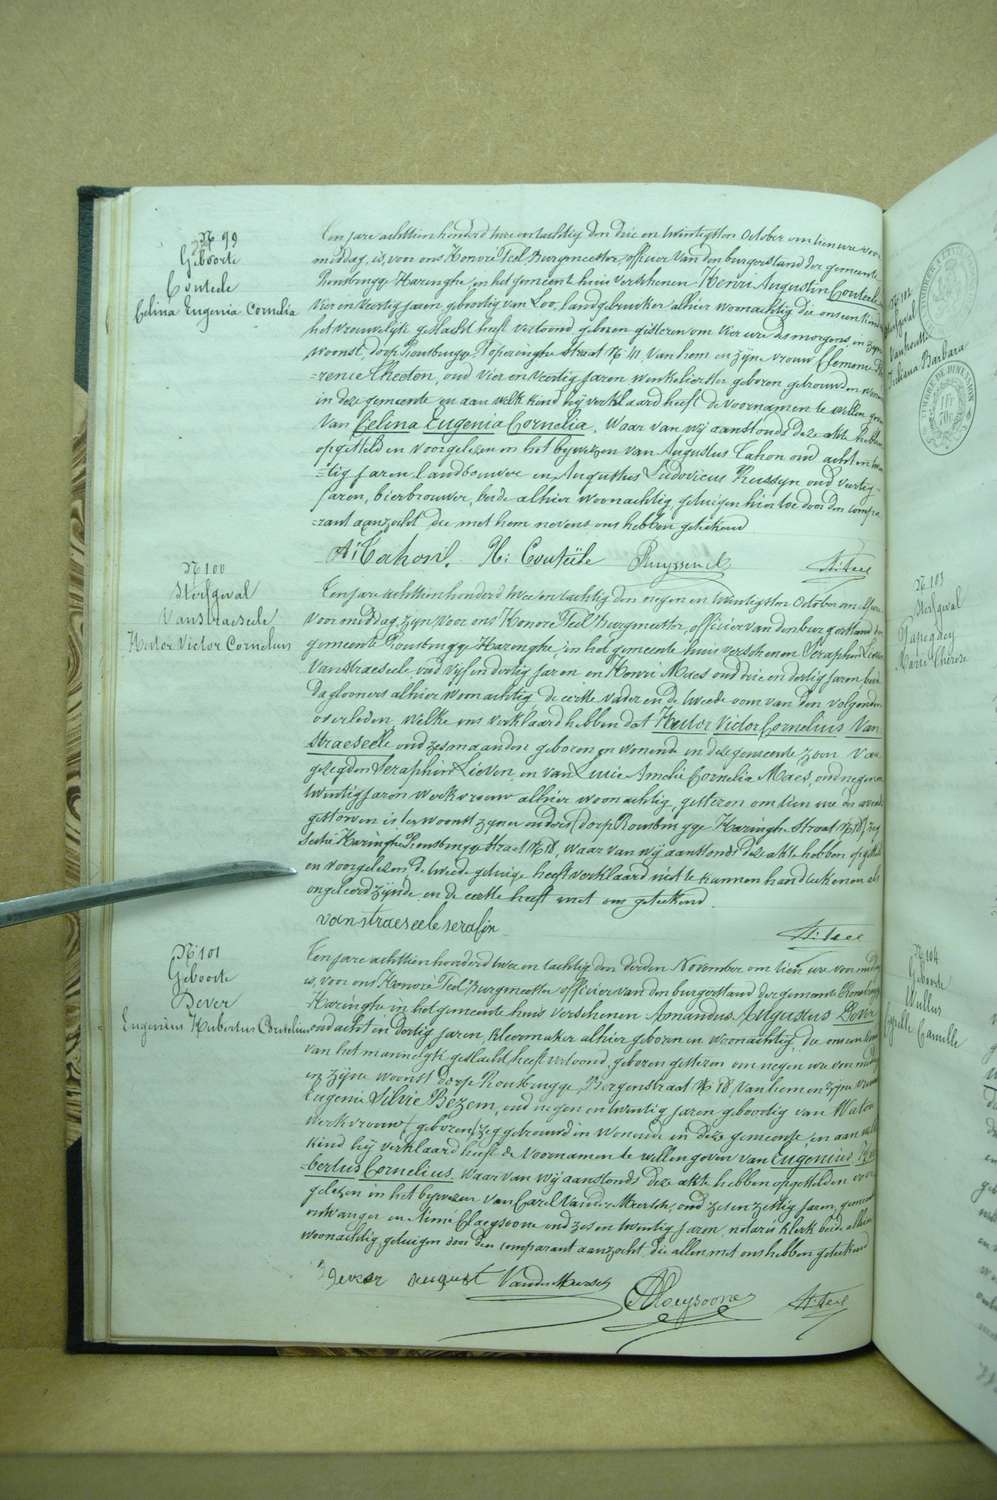 N° 99
Geboorte
Couteele
Celina Eugenia Cornelia
Ten jare achttien honderd twee en tachtig den drie en twintigsten October om tien ure voor
middag, is, van ons Honoré Teel Burgmeester, officier van den burgerstand der gemeente
Rousbrugge Haringhe, in het gemeente huis verschenen Henri Augustin Couteele
vier en veertig jaren, geboortig van Loo, landgebruiker alhier woonachtig die ons een kind
het vrouwelyk geslacht heeft vertoond, geboren gisteren om vier ure des morgens in zyne
woonst, dorp Rousbrugge, Poperinghe Straat N° 11, van hem en zyne vrouw Clemence
oud vier en veertig jaren winkelierster geboren gehuisd en
in deze gemeente en aan welk kind hy verklaard heeft de voornamen te willen geven
van Celina Eugenia Cornelia. Waar van wij aanstonds deze akte hebben
opgesteld en voorgelezen in het bywezen van Augustus Cahon oud acht en
=tig jaren landbouwer en Augustus Ludovicus Ruyssen oud veertig
jaren, bierbrouwer, beide alhier woonachtig, getuigen hier toe door den compa
=rant aanzocht die met hem nevens ons hebben geteekend
A: Cahon. H: Couteele Ruyssen L H: Teel
N° 100
Sterfgeval
Vanstraeseele
Hector Victor Cornelius
Ten jare achttien honderd twee en tachtig den negen en twintigsten October om
voor middag, zyn voor ons Honoré Teel Burgmeester, officier van den burgerstand der
gemeente Rousbrugge Haringhe, in het gemeente huis verschenen Seraphin Lieven
Vanstraeseele oud vijf en dertig jaren en Henri Maes oud drie en dertig jaren beide
daglooners alhier woonachtig, de eerste vader en de tweede oom van den volgenden
overleden, welke ons verklaard hebben dat Hector Victor Cornelius Van
straeseele oud zes maanden geboren en wonende in deze gemeente zoon van
gezegden Seraphin Lieven, en van Lucie Amelie Cornelia Maes, oud negen en
twintig jaren werkvrouw alhier woonachtig, gisteren om tien ure des avonds
gestorven is ter woonst zyner ouders (dorp Rousbrugge Haringhe Straat N° 18) zeg
sectie Haringhe Rousbrugge Straat N° 18, waar van wij aanstonds deze akte hebben opgesteld
en voorgelezen, de tweede getuige heeft verklaard niet te kunnen handteekenen als
ongeleerd zynde, en de eerste heeft met ons geteekend
vanstraeseele serafin H: Teel
N° 101
Geboorte
Dever
Eugenius Hubertus Cornelius
Ten jare achttien honderd twee en tachtig den derden November om tien ure voor middag
is, voor ons Honoré Teel Burgmeester officier van den burgerstand der gemeente Rousbrugge
Haringhe in het gemeente huis verschenen Amandus Augustus Dever
oud acht en dertig jaren, kleermaker alhier geboren en woonachtig, die ons een kind
van het mannelyk geslacht heeft vertoond, geboren gisteren om negen ure voor middag
in zyne woonst dorp Rousbrugge, Bergenstraat N° 18, van hem en zyne vrouw
Eugenie Silvie Bezem, oud negen en twintig jaren geboortig van Watou
werkvrouw (geboren) zeg gehuisd en wonende in deze gemeente, en aan welk
kind hij verklaard heeft de voornamen te willen geven van Eugenius Hu
bertus Cornelius. Waar van wij aanstonds deze akte hebben opgesteld en voor
gelezen in het bywezen van Carel Vander Meersch, oud zes en zestig jaren, gemeente
ontvanger en Aimé Claeysoone oud zes en twintig jaren, notaris klerk beide alhier
woonachtig, getuigen door den comparant aanzocht, die allen met ons hebben geteekend
Dever august Vander Meersch A Claeysoone H: Teel
N° 102
Sterfgeval
Vanhoutte
Juliana Barbara
TIMBRE DE DIMENSION
N° 103
Sterfgeval
Marie Therese
N° 104
Geboorte
Wullus
Cyrille Camille